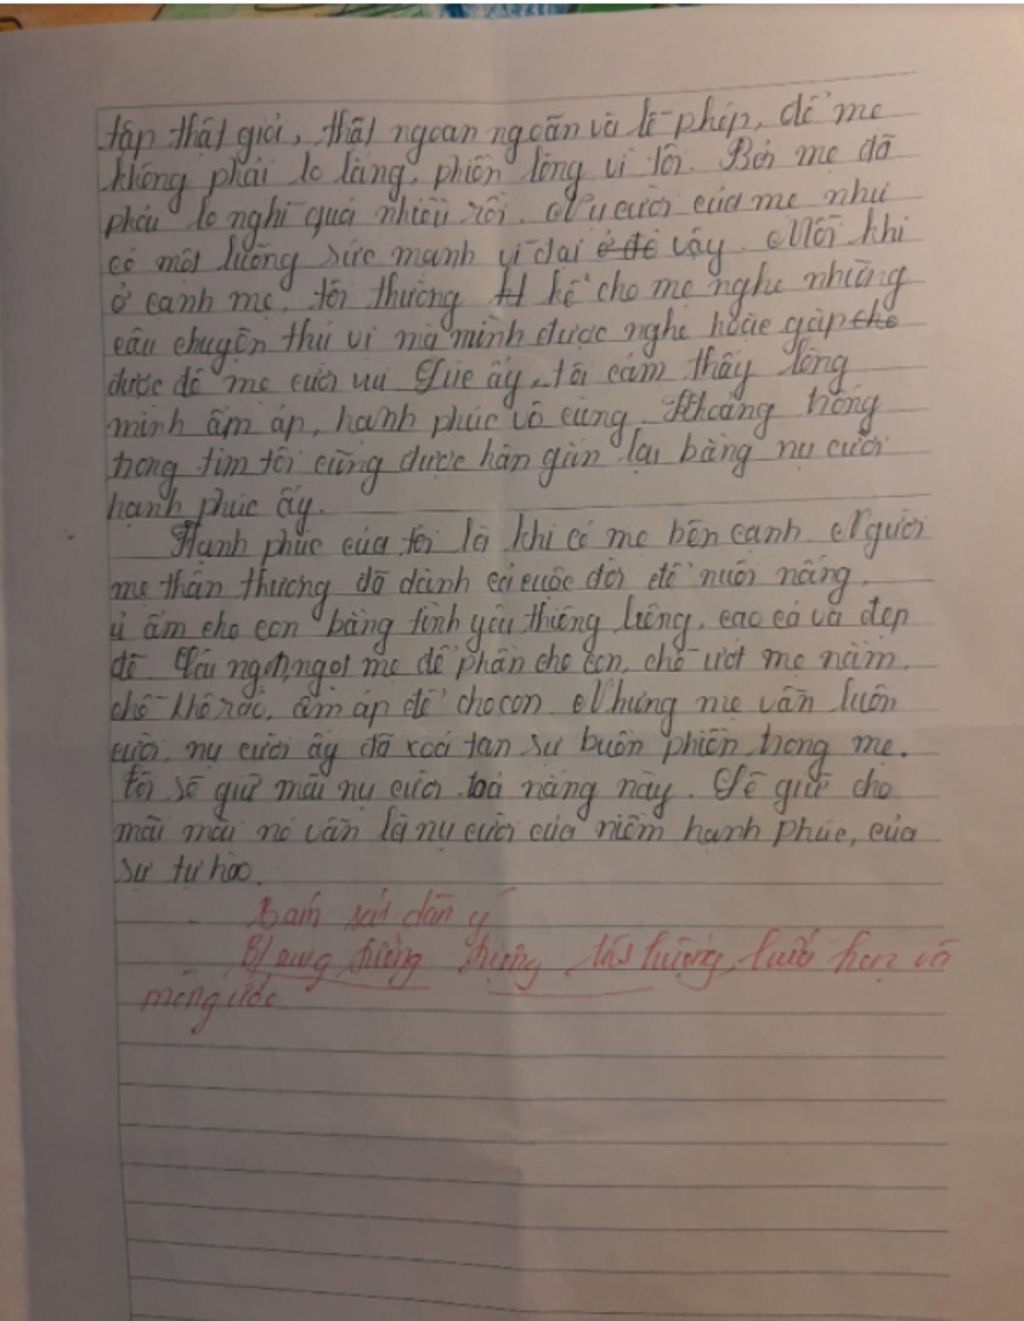 tập thật giỏi, thật ngoan ngoãn và lễ phép, để mẹ
không phải lo lắng, phiền lòng vì tôi. Bởi mẹ đã
phải lo nghĩ quá nhiều rồi. Nụ cười của mẹ như
có một luồng sức mạnh vĩ đại ở đó vậy. Mỗi khi
ở cạnh mẹ, tôi thường kể cho mẹ nghe những
câu chuyện thú vị mà mình được nghe hoặc gặp cho
được để mẹ cười vui. Lúc ấy, tôi cảm thấy lòng
mình ấm áp, hạnh phúc vô cùng. Khoảng trống
trong tim tôi cũng được hàn gắn lại bằng nụ cười
hạnh phúc ấy.
Hạnh phúc của tôi là khi có mẹ bên cạnh. Người
mẹ thân thương đã dành cả cuộc đời để nuôi nấng,
ủ ấm cho con bằng tình yêu thiêng liêng, cao cả và đẹp
đẽ. Trái ngon, ngọt mẹ để phần cho con, chỗ ướt mẹ nằm,
chỗ khô ráo, ấm áp để cho con. Nhưng mẹ vẫn luôn
cười, nụ cười ấy đã xoá tan sự buồn phiền trong mẹ.
Tôi sẽ giữ mãi nụ cười toả nắng này. Sẽ giữ cho
mãi mãi nó vẫn là nụ cười của niềm hạnh phúc, của
sự tự hào.
Bám sát dàn ý
và
mong ước